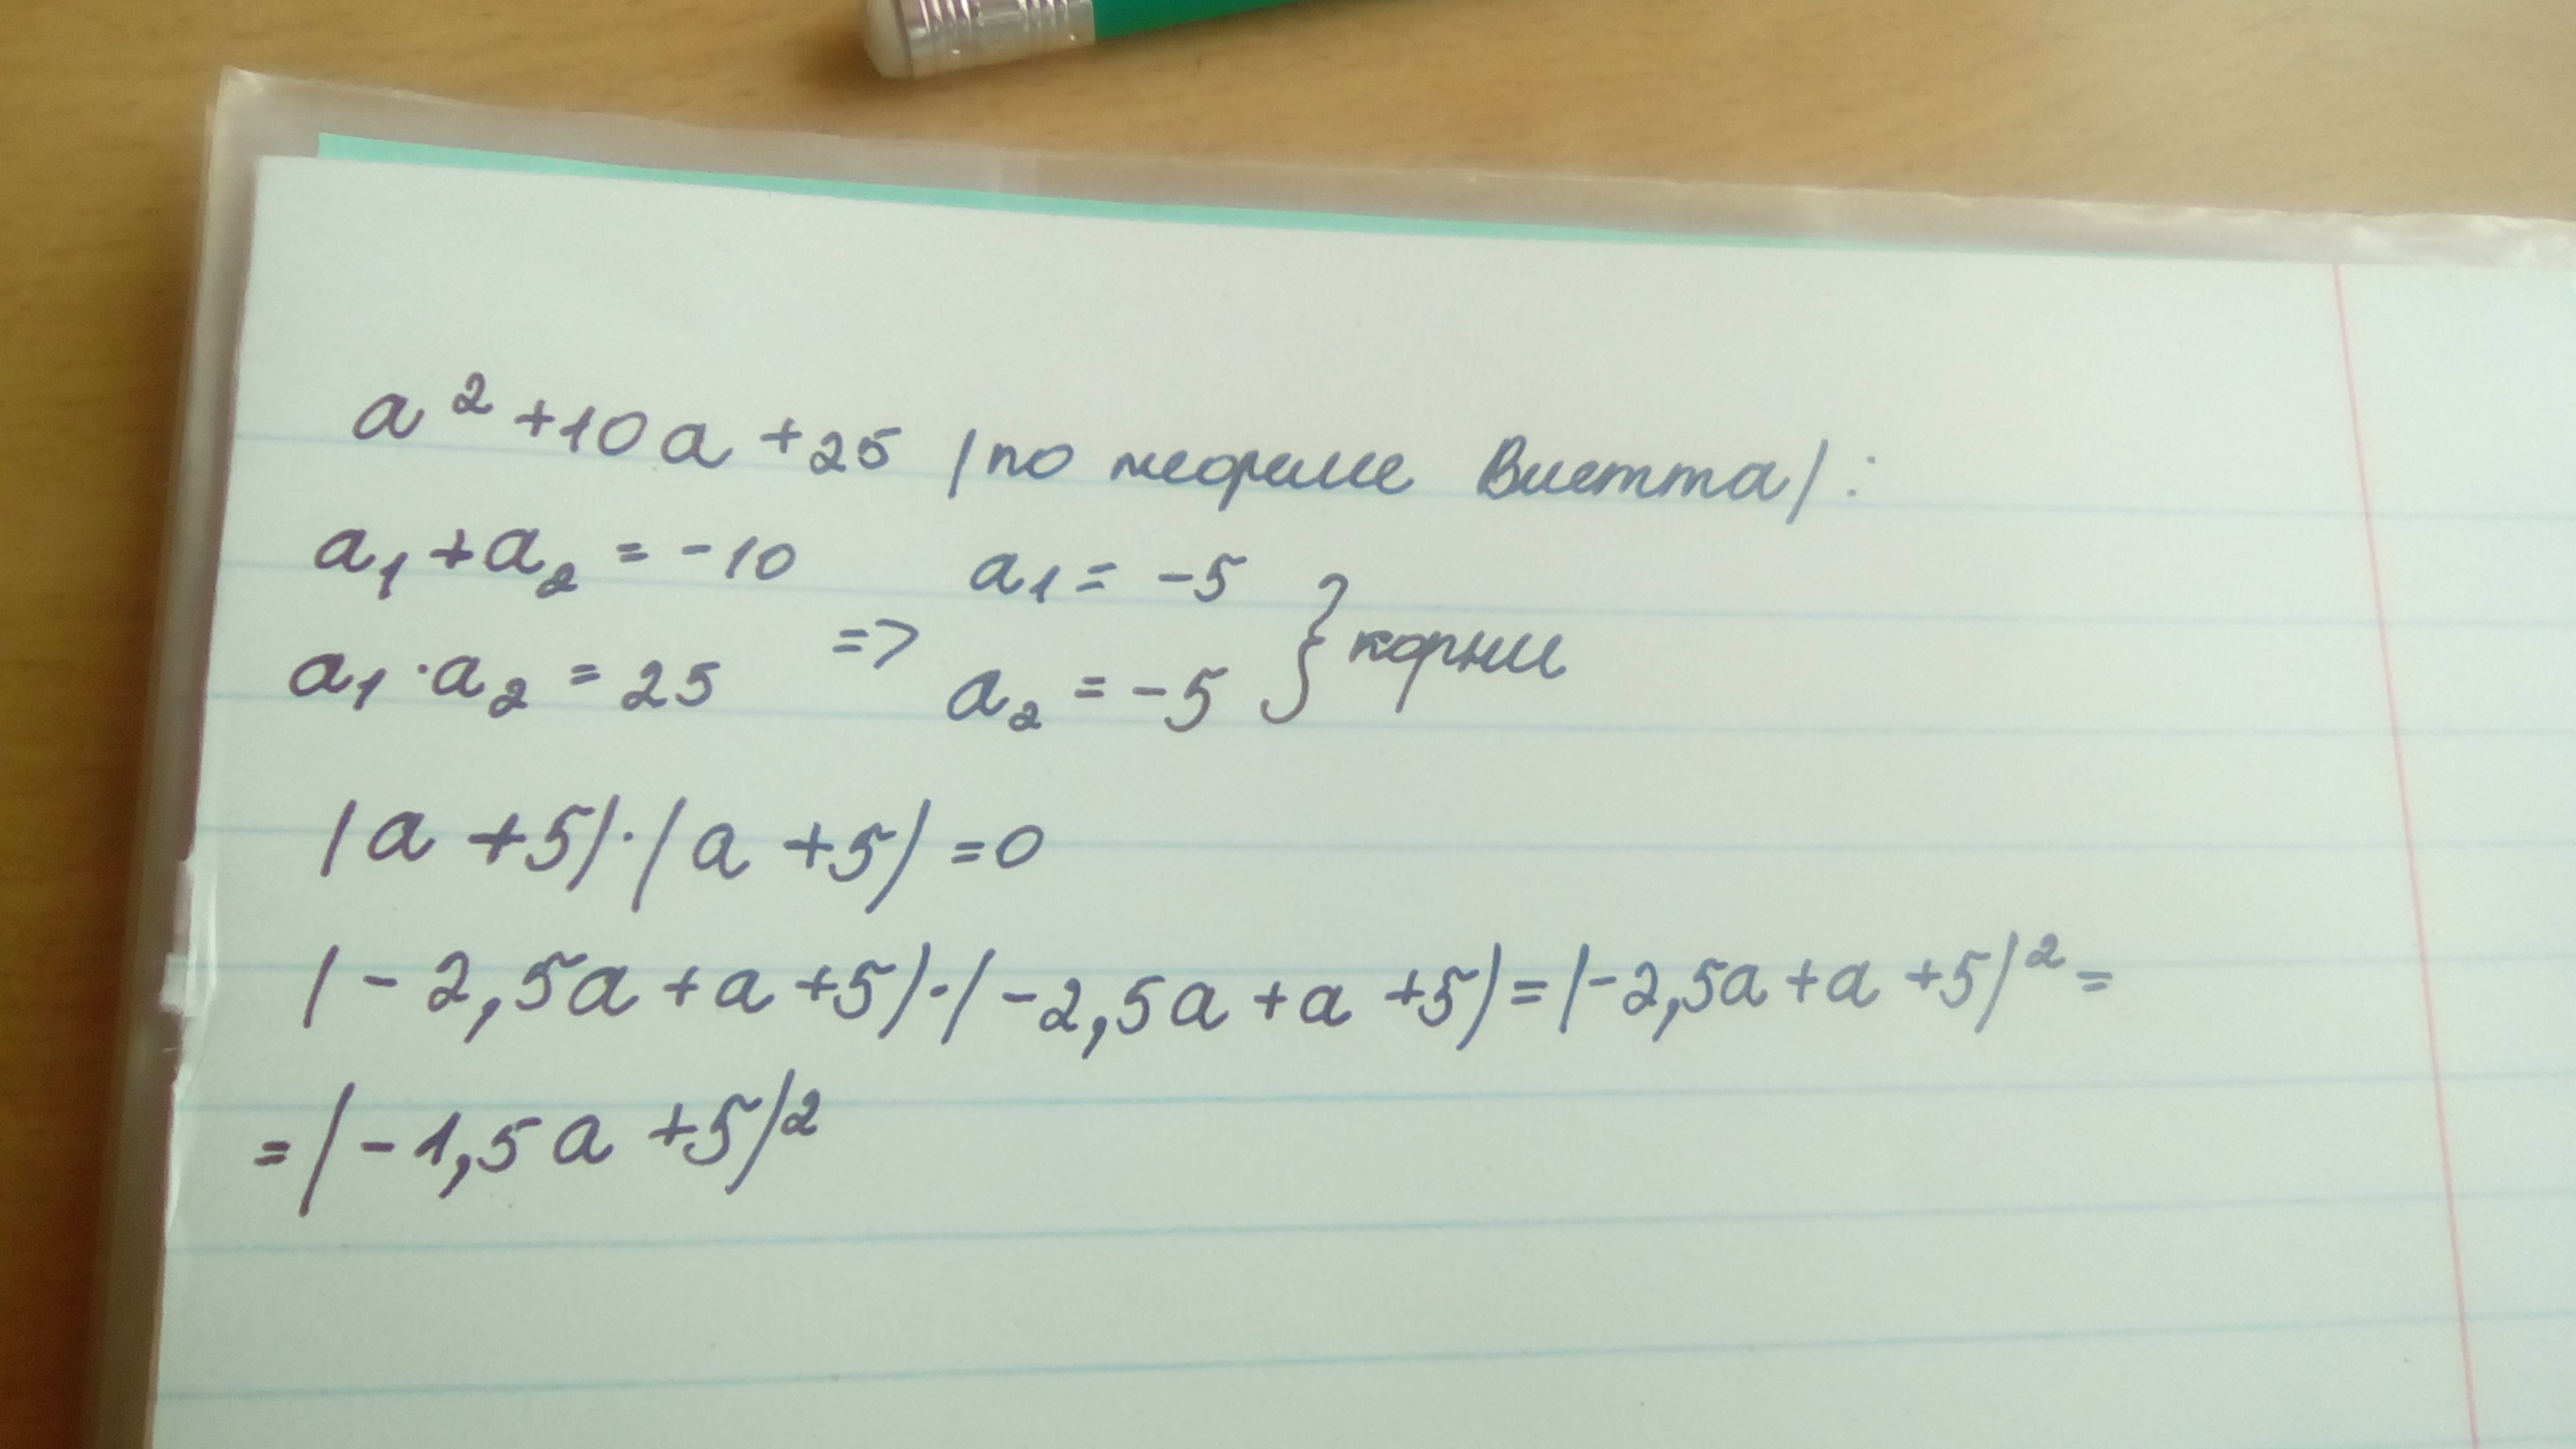 a² + 10a + 25 (по теореме Виетта):
a₁ + a₂ = -10
a₁ · a₂ = 25 => a₁ = -5
a₂ = -5 } корни
(a + 5) · (a + 5) = 0
(-2,5a + a + 5) · (-2,5a + a + 5) = (-2,5a + a + 5)² =
= (-1,5a + 5)²